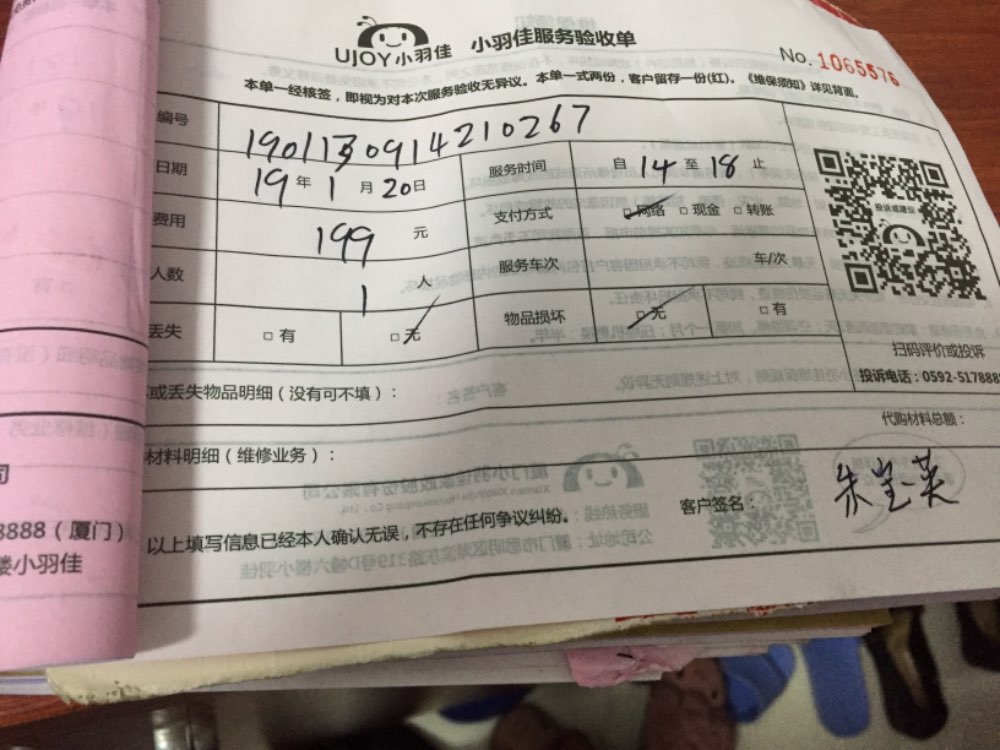 UJOY小羽佳 小羽佳服务验收单
No. 1065576
本单一经核签，即视为对本次服务验收无异议。本单一式两份，客户留存一份(红)。《维保须知》详见背面。
编号 1901130914210267
日期 19年1月20日 服务时间 自14至18止
费用 199元 支付方式 □网络 □现金 □转账
人数 1人 服务车次 车/次
丢失 □有 □无 物品损坏 □无 □有
投诉或建议
扫码评价或投诉
投诉电话：0592-517888
或丢失物品明细（没有可不填）：
代购材料总额：
材料明细（维修业务）：
客户签名： 朱宝英
以上填写信息已经本人确认无误，不存在任何争议纠纷。
司
8888（厦门）
楼小羽佳